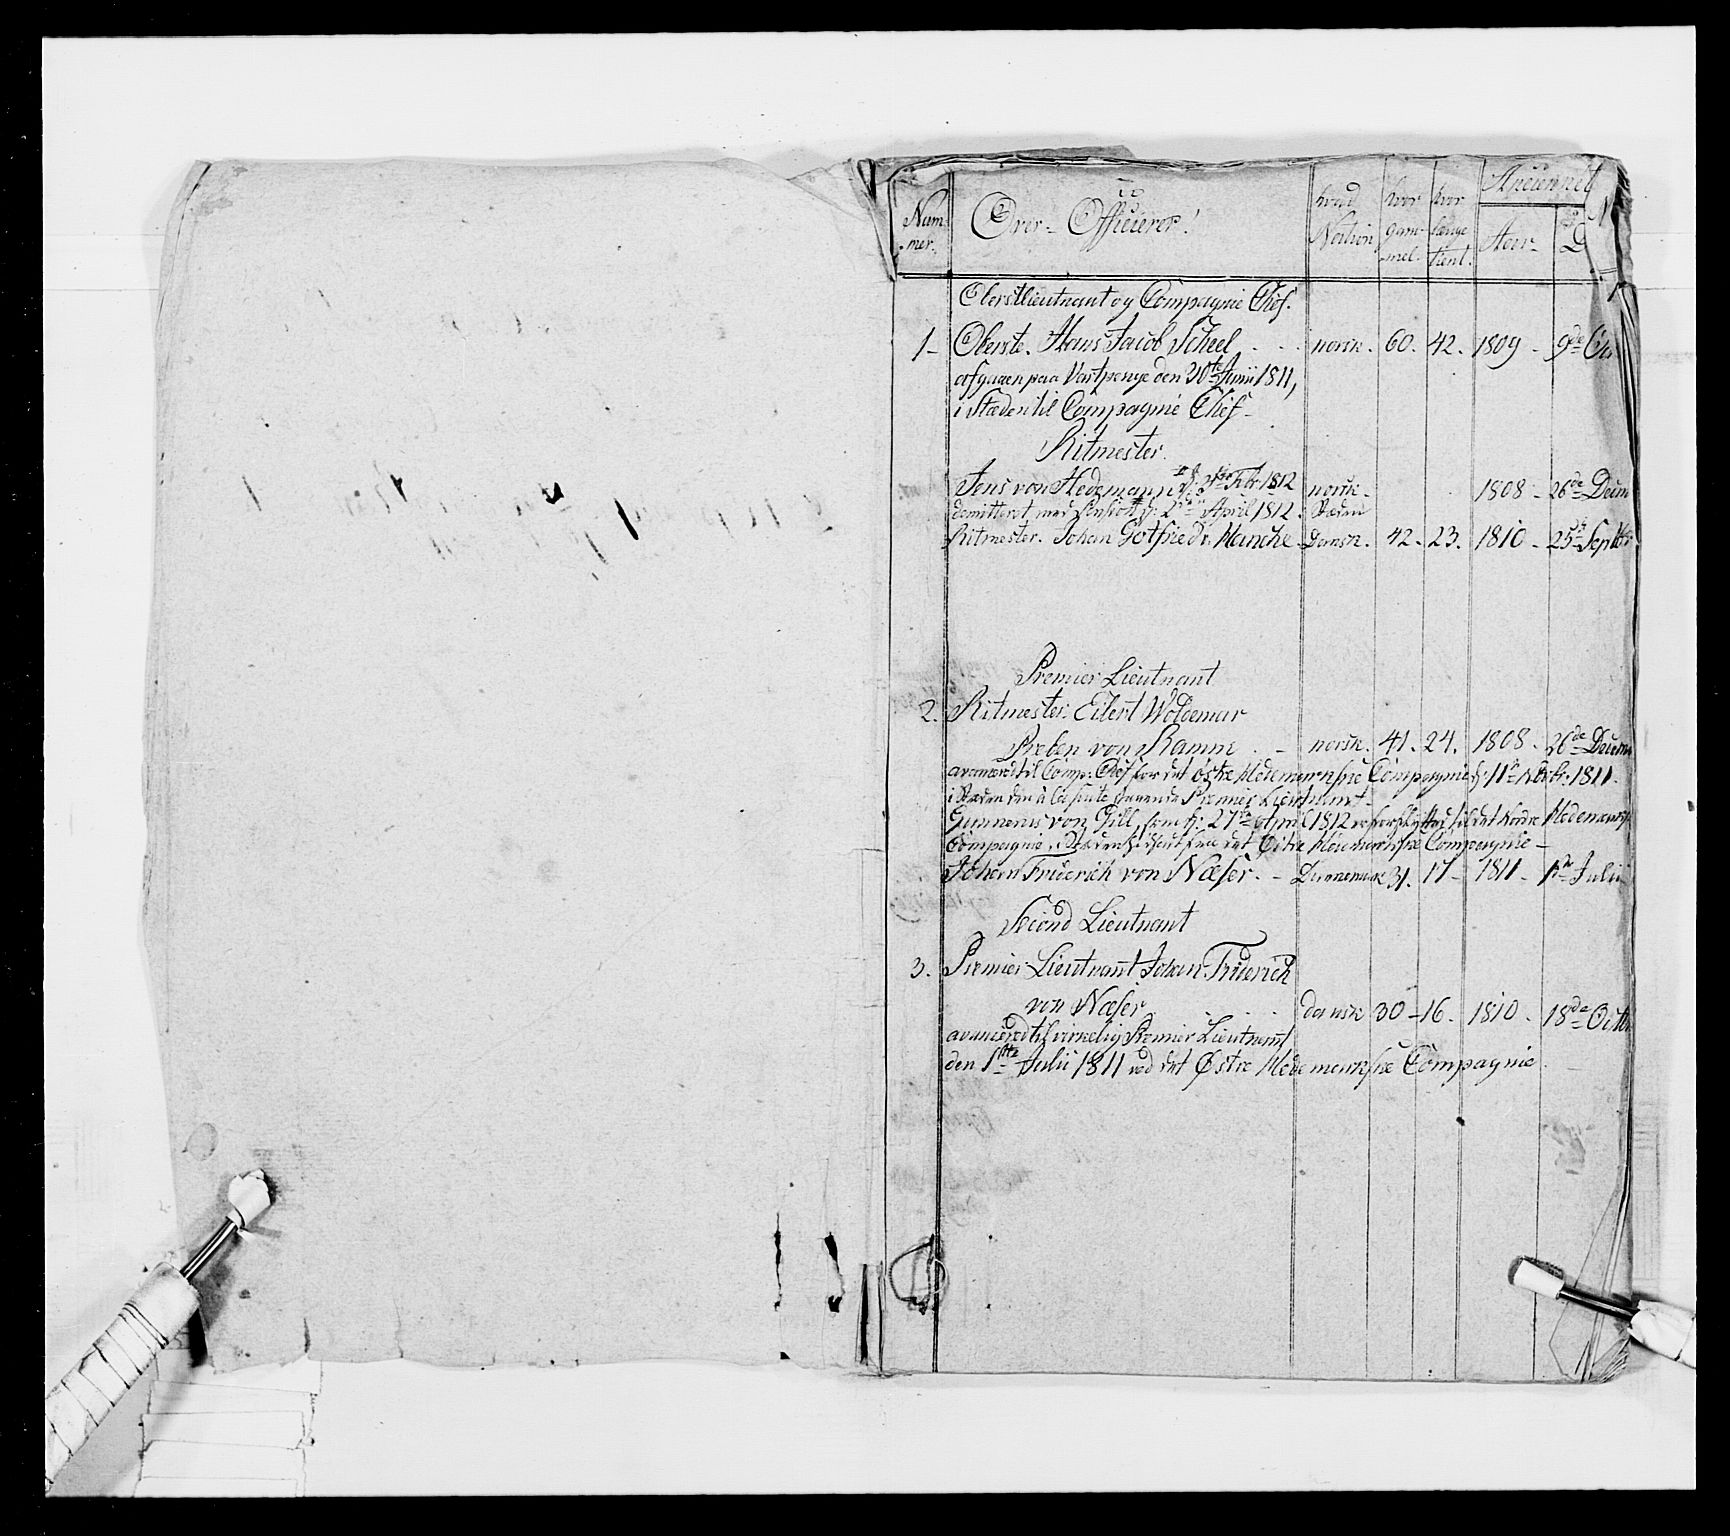 Num-
mer.
Over-Officierer!
hvad
Nation
hvor
gam-
mel.
hvor
længe
tient.
Anciennet
Aar-
Oberstlieutnant og Compagnie Chef.
1- Oberste. Hans Jacob Scheel . . . norsk. 60. 42. 1809 - 9de
afgaaen paa Vartpenge den 30te Junii 1811,
i Stæden til Compagnie Chef-
Ritmester.
Jens von Hedemann Febr. 1812 norsk. 1808 - 26de Decem
demitteret med Pension April 1812. Stæden
Ritmester. Johan Gotfriedr. Hancke. Dansk. 42. 23. 1810 - 25de Septbr
Premier Lieutnant
2. Ritmester. Eilert Woldemar
Preben von Ramm . - norsk. 41. 24. 1808. 26de Decem
avanceret til Comp: Chef for det østre Hedemarkske Compagnie d: 11te Novbr. 1811.
i Stæden den à la suite staaende Premier Lieutnant-
Gunnerus von Gill, som d: 27de April 1812 er forflyttet til det Nordre Hedemarkske
Compagnie, i Stæden det Østre Hedemarkske Compagnie-
Johan Friderich von Næser. - Dannemark 31. 17- 1811- 1te Julii
Second Lieutnant
3. Premier Lieutnant Johan Friderich
von Næser . . . dansk 30-16. 1810. 18de Octbr
avanceret til virkelig Premier Lieutnant
den 1ste Julii 1811 ved det Østre Hedemarkske Compagnie.